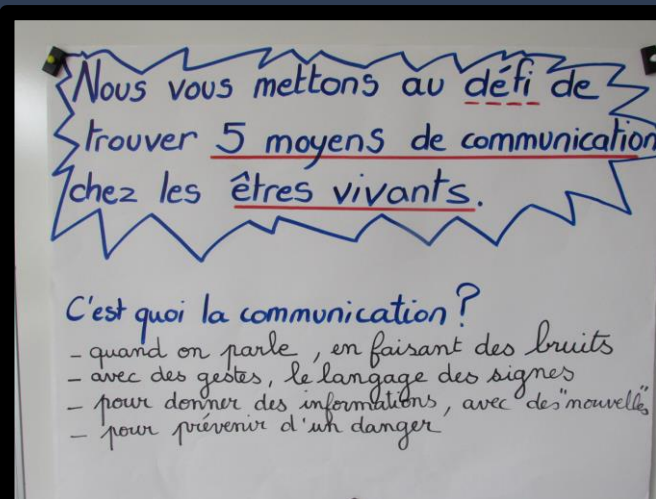 Nous vous mettons au défi de
trouver 5 moyens de communication
chez les êtres vivants.
C'est quoi la communication ?
- quand on parle, en faisant des bruits
- avec des gestes, le langage des signes
- pour donner des informations, avec des "nouvelles"
- pour prévenir d'un danger